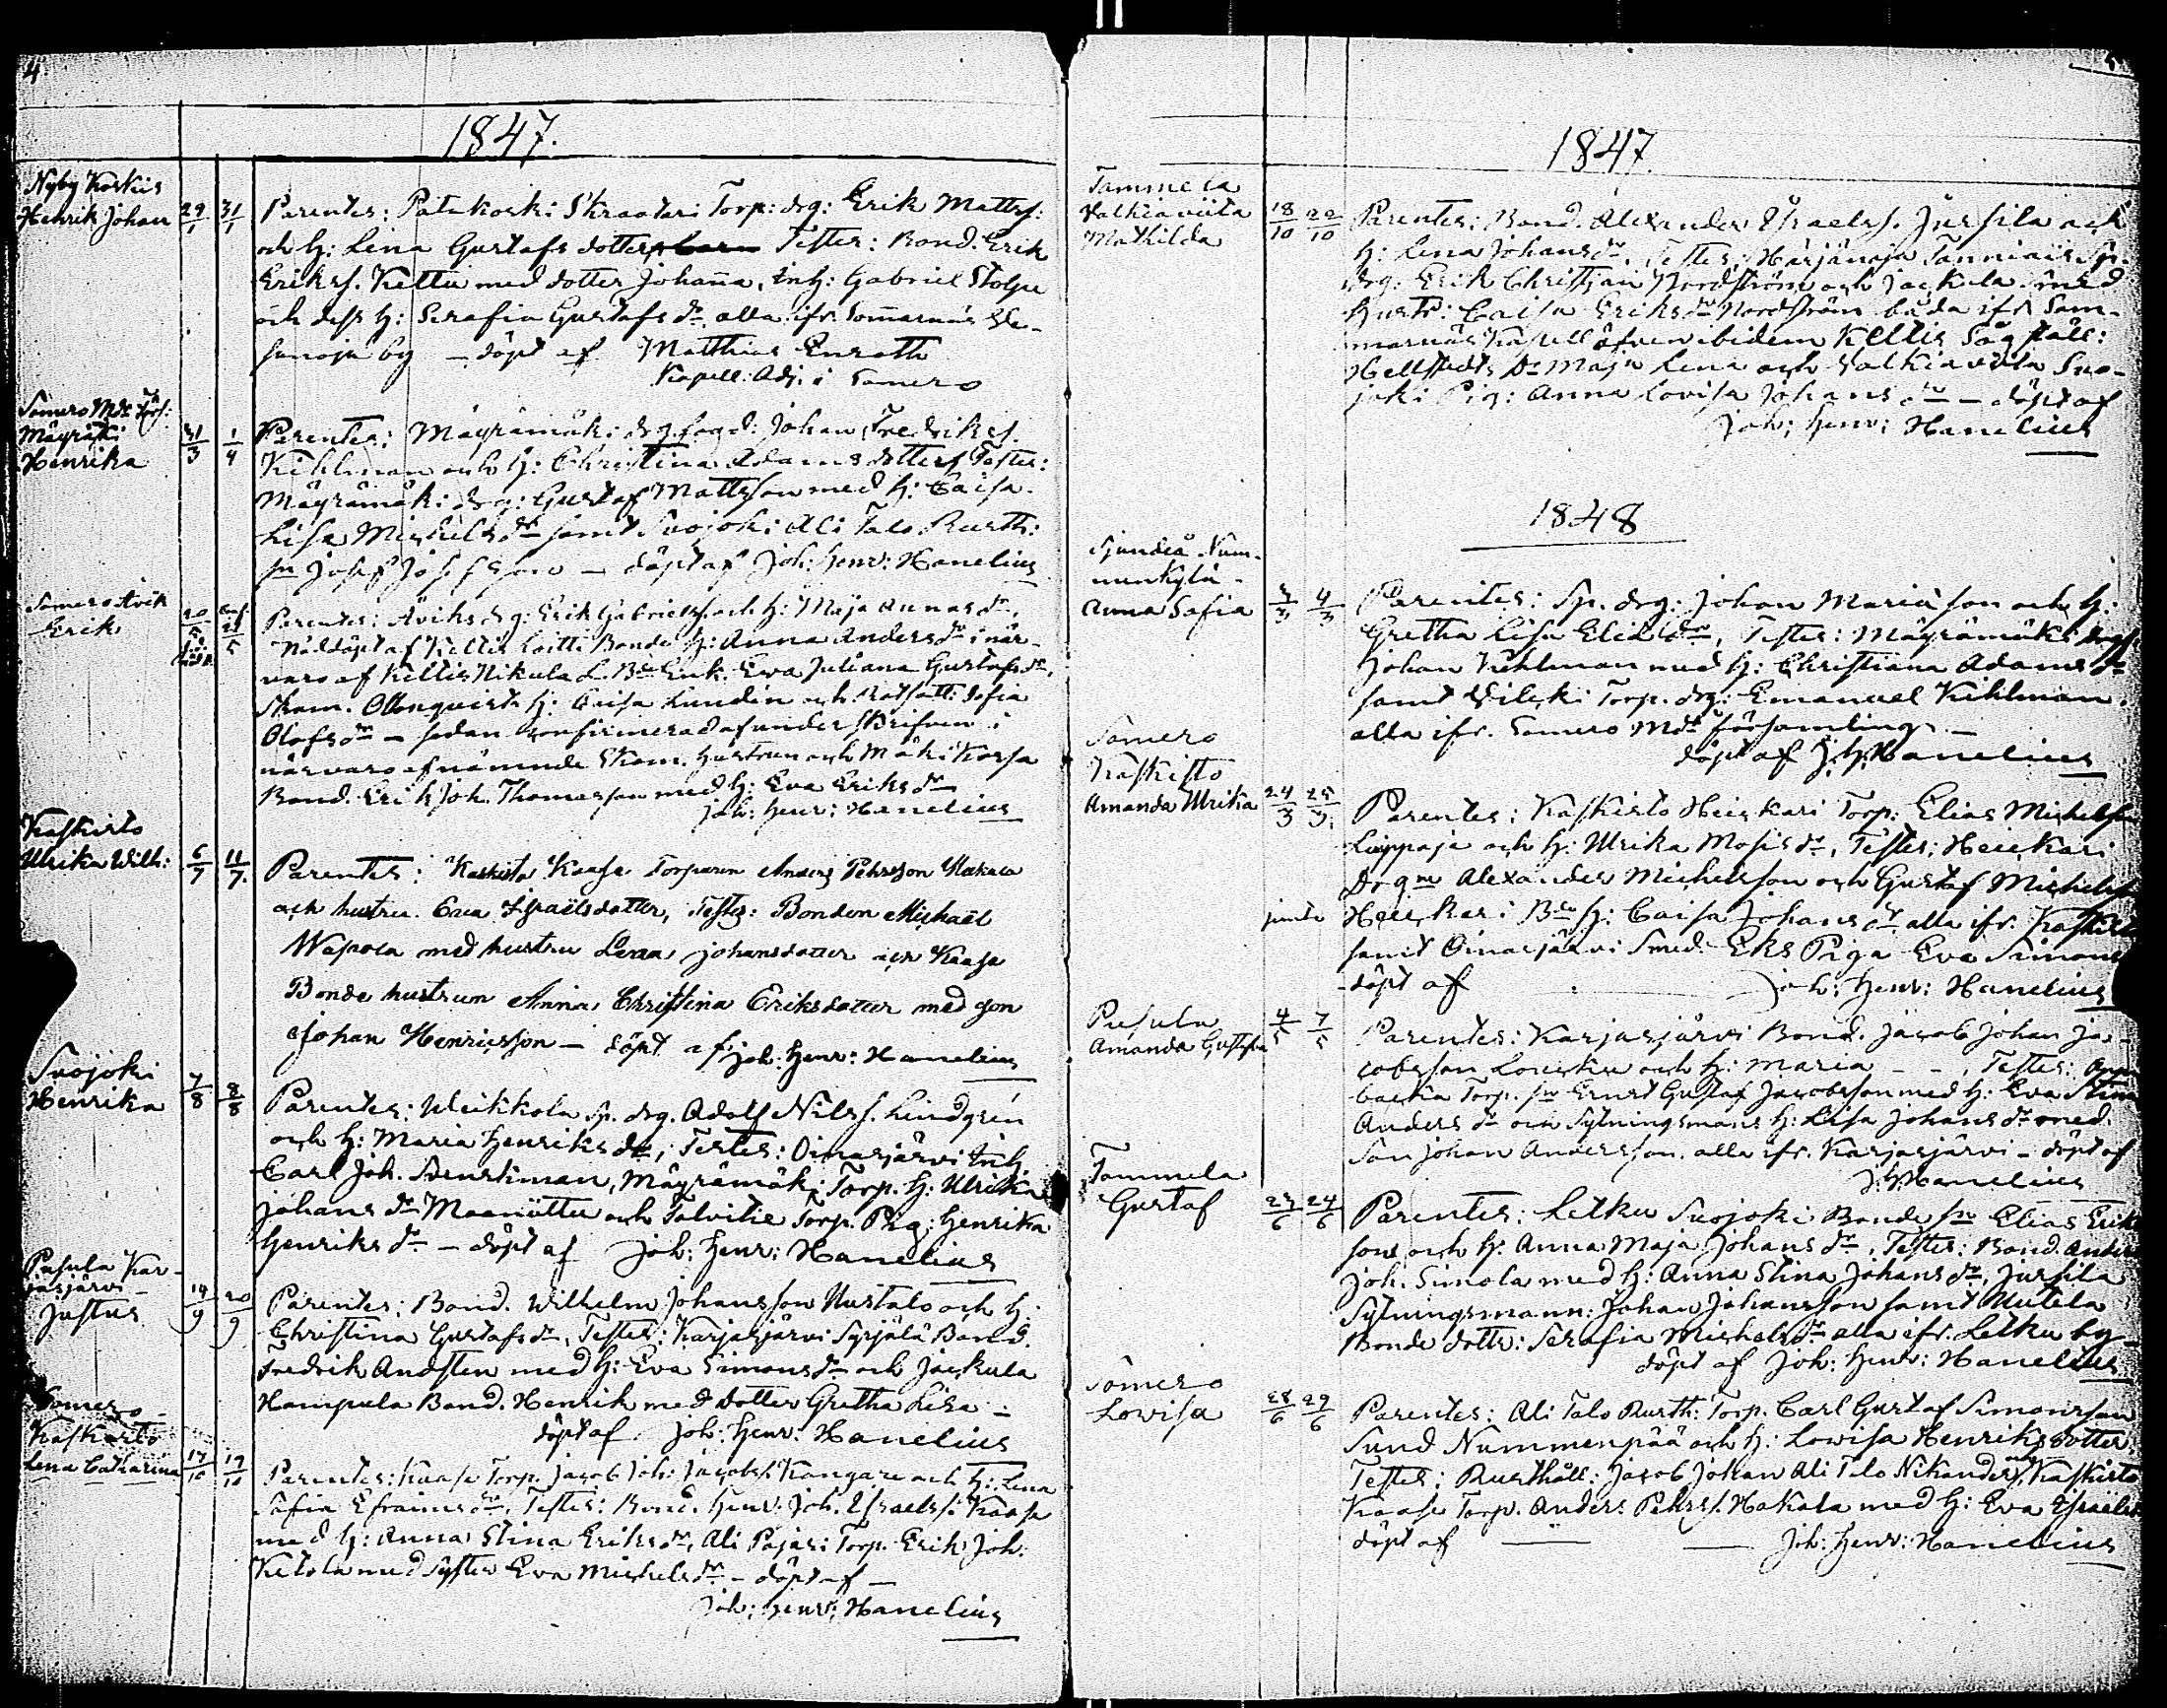 4.
1847.
Nyby Koskis
Henrik Johan 29/1 31/1
Parentes: Patakoski Skraatari Torp: drg: Erik Mattss:
och H: Lena Gustafs dotter, Testes: Bond. Erik
Erikss. Kettu med dotter Johanna, Inh: Gabriel Stolpe
och dess H: Serafia Gustafs dr alla ifr. Sommarnäs
by – döpt af Matthias Enroth
Kapell: Adj. i Somero
Somero Mdr förs:
Mäyrämäki
Henrika 31/3 1/4
Parentes: Mäyrämäki drg. Johan Fredrikss.
Kihlman och H: Christina Adams dotter, Testes:
Mäyrämäki drg: Gustaf Mattsson med H: Caisa
Lisa Michels dr samt Suojoki Ali Talo Rusth:
sn Josef Josefsson – döpt af Joh: Henr: Hanelius
Somero Åvik
Erik 20/5
Parentes: Åviks drg: Erik Gabrielss. och H: Maja Annas dr,
Nöddöpt af Keltis Loitti Bonde H: Anna Anders dr i när-
varo af Keltis Nikula Enk. Eva Juliana Gustafs dr,
Skom. Ollonquists H: Caisa Lundén och Sofia
Olofs dr – sedan confirmerad af underskrifven i
närvaro af nämnde Skom. hustrun och Mäki Korsa
Bond. Erik Joh. Thomasson med H: Eva Eriks dr
Joh: Henr: Hanelius
Kaskisto
Ulrika Wilh: 6/7 11/7
Parentes: Kaskisto Kaase Torparen Anders Pehrsson Hakala
och hustru Eva Israëlsdotter, Testes: Bonden Michaël
Wapola med hustru Lena Johansdotter och Kaase
Bonde hustrun Anna Christina Eriksdotter med son
Johan Henricsson – döpt af Joh: Henr: Hanelius
Suojoki
Henrika 7/8 8/8
Parentes: Weikkola sp. drg. Adolf Nilss. Lindgrén
och H: Maria Henriks dr, Testes: Oinasjärvi Inh.
Carl Joh. Stenskman, Mäyrämäki Torp. H: Ulrika
Johans dr Maaniittu och Talvitie Torp. Pig: Henrika
Henriks dr – döpt af Joh: Henr: Hanelius
Pusula Kar-
jasjärvi –
Justus 19/9 20/9
Parentes: Bond. Wilhelm Johansson Uustalo och H:
Christina Gustafs dr, Testes: Karjasjärvi Syrjälä Bond.
Fredrik Andsten med H: Eva Simons dr och Jackula
Hampula Bond. Henrik med dotter Gretha Lisa –
döpt af Joh: Henr: Hanelius
Somero –
Kaskisto
Lena Catharina 17/10 19/10
Parentes: Kaase Torp. Jacob Joh: Jacobss. Kangare och H: Lena
Sofia Efraims dr, Testes: Bond. Henr. Joh. Israelss. Kaase
med H: Anna Stina Eriks dr, Ali Pajari Torp. Erik Joh:
Ketola med Syster Eva Michels dr – döpt af –
Joh: Henr: Hanelius
1847.
Tammela
Valkiaviita
Mathilda 18/10 22/10
Parentes: Bond. Alexander Israelss. Jursila och
H: Lena Johans dr, Testes: Härjänoja Sp.
drg. Erik Christjan Nordström och Jackula med
hustr: Caisa Eriks dr Nordström båda ifr. Som-
marnäs Kapell äfven ibidem Keltis Sågställ:
Hellstedts Dr Maja Lena och Valkiaviita Suo-
joki Pig: Anna Lovisa Johans dr – döpt af
Joh: Henr: Hanelius
1848
Sjundeå Num-
menkylä –
Anna Sofia 3/3 4/3
Parentes: Sp. drg: Johan Mariä son och H:
Gretha Lisa Elids dr, Testes: Mäyrämäki drg.
Johan Kihlman med H: Christiana Adams dr
samt Torp. drg: Emanuel Kihlman.
alla ifr. Somero Mdr församling –
döpt af J. H. Hanelius
Somero
Kaskisto
Amanda Ulrika 24/3 25/3
Parentes: Kaskisto Heickari Torp: Elias Michelsson
Luppaja och H: Ulrika Mosis dr, Testes: Heickari
Drgne Alexander Michelsson och Gustaf Michelss
jemte Heickari Bde H: Caisa Johans dr alla ifr. Kaskisto
samt Oinasjärvi Smed. Eks Piga Eva Simons
döpt af Joh: Henr: Hanelius
Pusula
Amanda Gustafva 4/5 7/5
Parentes: Karjasjärvi Bond. Jacob Johan Ja-
cobsson och H: Maria – – , Testes:
backa Torp. sn Ernst Gustaf Jacobsson med H: Eva Stina
Anders dr och Sytningsmans H: Lisa Johans dr med
Son Johan Andersson. alla ifr. Karjasjärvi – döpt af
J. H. Hanelius
Tammela
Gustaf 23/6 24/6
Parentes: Letku Suojoki Bonde sn Elias Erik
son och H: Anna Maja Johans dr, Testes: Bond. Anders
Joh. Simola med H: Anna Stina Johans dr, Jursila
Sytningsmann: Johan Johansson samt Uutela
Bonde dottr: Serafia Michels dr alla ifr. Letku by –
döpt af Joh: Henr: Hanelius
Somero
Lovisa 28/6 29/6
Parentes: Ali Talo Rusth: Torp. Carl Gustaf Simonsson
Sund Nummenpää och H: Lovisa Henriksdotter.
Testes: Rusthåll: Jacob Johan Ali Talo Nikander, och Kaskisto
Kaase Torp. Anders Pehrss. Hakala med H: Eva Israels
döpt af — — Joh: Henr: Hanelius